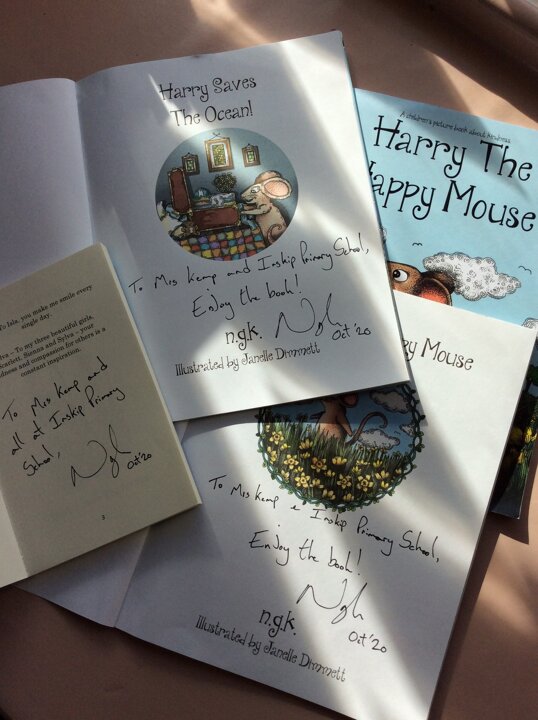 Harry Saves
The Ocean!
To Mrs Kemp and Inskip Primary School,
Enjoy the book!
Oct '20
n.g.k.
Illustrated by Janelle Dimmett
A children's picture book about kindness
Harry The
Happy Mouse
To Isla, you make me smile every
single day.
To my three beautiful girls,
Scarlett, Sienna and Sylva - your
kindness and compassion for others is a
constant inspiration.
To Mrs Kemp and
all at Inskip Primary
School,
Oct '20
3
ppy Mouse
To Mrs Kemp & Inskip Primary School,
Enjoy the book!
Oct '20
n.g.k.
Illustrated by Janelle Dimmett